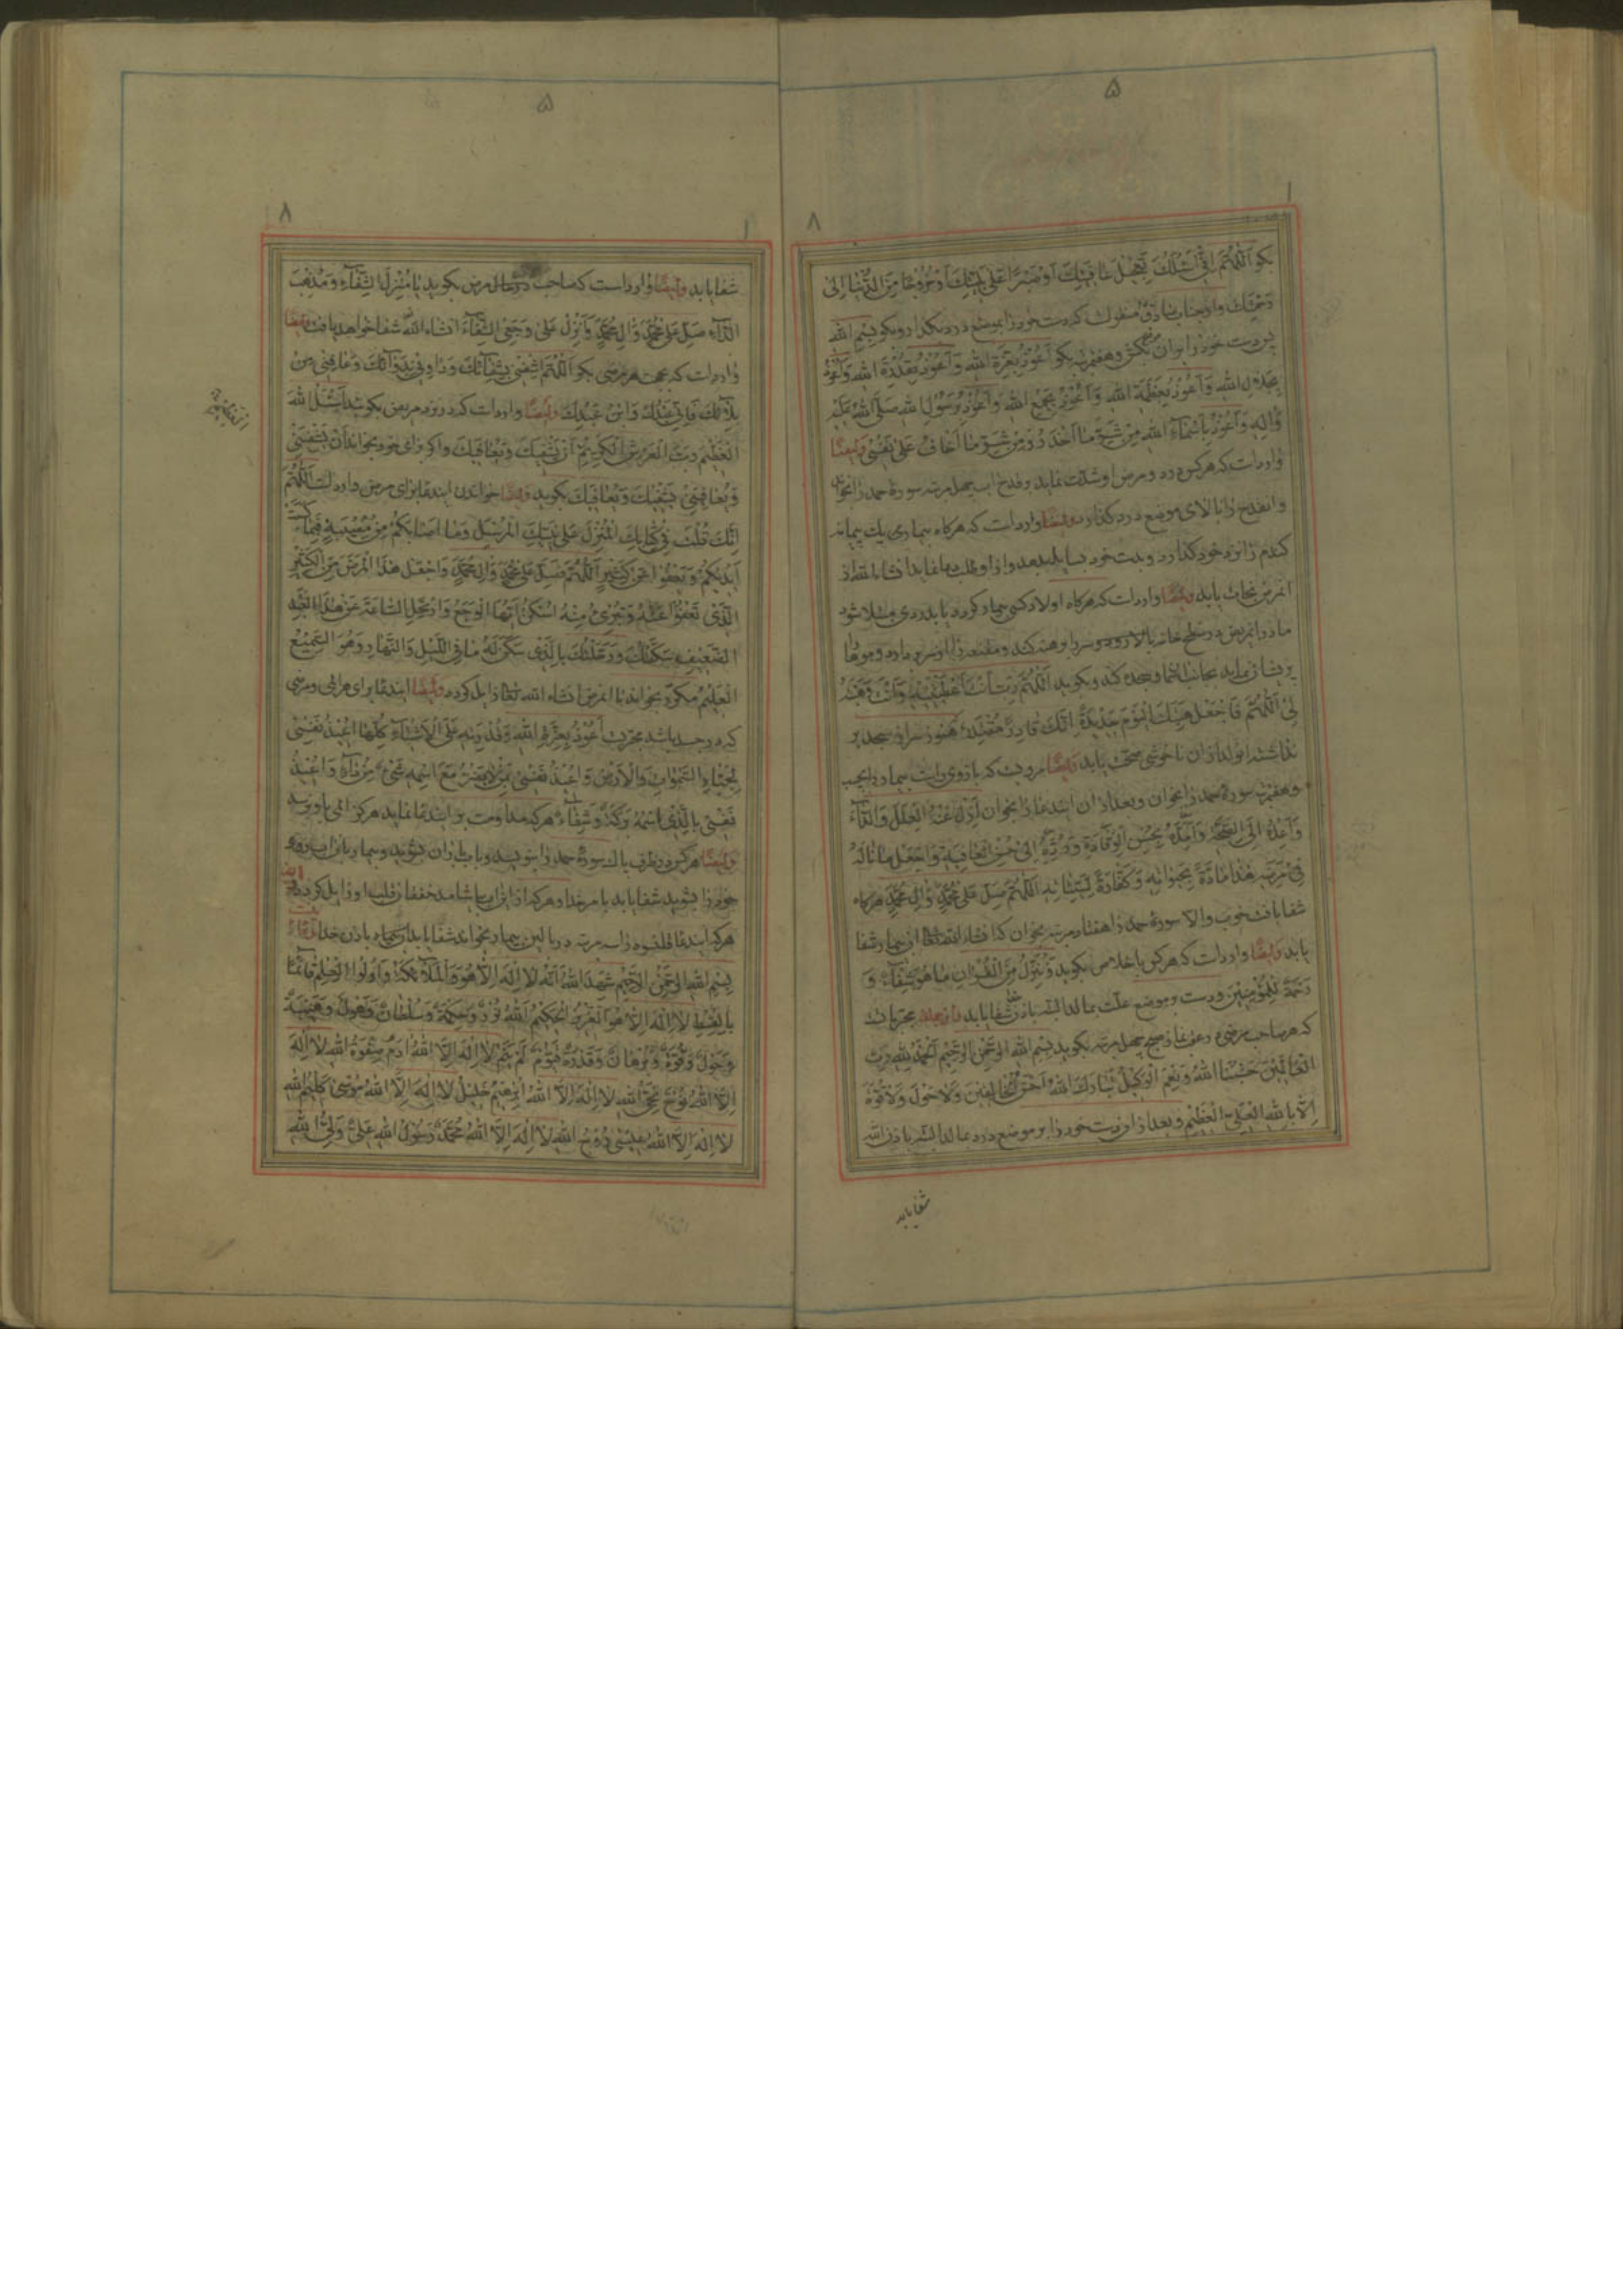 ۵
۱
۸
بکو اَللّهُمَّ اِنّی اَسْئَلُکَ تَعْجیلَ عافِیَتِکَ اَوْ صَبْرًا عَلی بَلِیَّتِکَ اَوْ خُرُوجًا مِنَ الدُّنْیا اِلی
رَحْمَتِکَ واز جناب صادقؑ منقول که دست خود را بموضع درد بگذار و بکو بِسْمِ اللهِ
پس دست خود را بران بکش وهفت مرتبه بکو اَعُوذُ بِعِزَّةِ اللهِ وَاَعُوذُ بِقُدْرَةِ اللهِ وَاَعُوذُ
بِجَلالِ اللهِ وَاَعُوذُ بِعَظَمَةِ اللهِ وَاَعُوذُ بِجَمْعِ اللهِ وَاَعُوذُ بِرَسُولِ اللهِ صَلَّی اللهُ عَلَیْهِ
وَالِهِ وَاَعُوذُ بِاَسْماءِ اللهِ مِنْ شَرِّ ما اَحْذَرُ وَمِنْ شَرِّ ما اَخافُ عَلی نَفْسی وایضًا
وارد است که هرکس درد و مرض او شدت نماید بر قدح اب چهل مرتبه سوره حمد را بخواند
وان قدح را بالای موضع درد کذارد وایضًا وارد است که هرکاه بیماری یک پیمانه
کندم را نزد خود کذارد و بدست خود بسایل بدهد واز او طلب دعا نماید انشاءالله از
ان مرض نجات یابد وایضًا وارد است که هرکاه اولاد کسی بیمار کردد یا بدردی مبتلا شود
مادر ان مریض در سطح خانه بالا رود و سر را برهنه کند و مقنعه را از سر بردارد و موها
پریشان نماید بجانب اسمان وسجده کند وبکوید اَللّهُمَّ رَبِّ اَنْتَ اَعْطَیْتَنیهِ وَاَنْتَ وَهَبْتَهُ
لی اَللّهُمَّ فَاجْعَلْ هِبَتَکَ الْیَوْمَ جَدیدَةً اِنَّکَ قادِرٌ مُقْتَدِرٌ هنوز سر از سجده بر
نداشته ان ولد از ان ناخوشی صحت یابد وایضًا مرویست که بازوی راست بیمار را بکیر
وهفت مرتبه سوره حمد را بخوان وبعد از ان این دعا را بخوان اَللّهُمَّ اَزِلْ عَنْهُ الْعِلَلَ وَالدّاءَ
وَاَعِدْهُ اِلَی الصِّحَّةِ وَاَمِدَّهُ بِحُسْنِ الْوِقایَةِ وَرُدَّهُ اِلی حُسْنِ الْعافِیَةِ وَاجْعَلْ ما نالَهُ
فی مَرَضِهِ هذا مادَّةً لِحَیاتِهِ وَکَفّارَةً لِسَیِّئاتِهِ اَللّهُمَّ صَلِّ عَلی مُحَمَّدٍ وَالِ مُحَمَّدٍ هرکاه
شفا یافت خوب والا سوره حمد را هفتاد مرتبه بخوان که انشاءالله تعالی ان بیمار شفا
یابد وایضًا وارد است که هرکس باخلاص بکوید وَنُنَزِّلُ مِنَ الْقُرْانِ ما هُوَ شِفاءٌ وَ
رَحْمَةٌ لِلْمُؤْمِنینَ ودست بر موضع علت بمالد البته باذن خدا شفا یابد واز جمله مجربات
که هر صاحب مرضی در عقب نماز صبح چهل مرتبه بکوید بِسْمِ اللهِ الرَّحْمنِ الرَّحیمِ اَلْحَمْدُ لِلّهِ رَبِّ
الْعالَمینَ حَسْبُنَا اللهُ وَنِعْمَ الْوَکیلُ تَبارَکَ اللهُ اَحْسَنُ الْخالِقینَ وَلا حَوْلَ وَلا قُوَّةَ
اِلاّ بِاللهِ الْعَلِیِّ الْعَظیمِ وبعد از ان دست خود را بر موضع درد بمالد البته باذن الله
شفا یابد
۵
۱
۸
شفا یابد وایضًا وارد است که صاحب مرض بکوید یا مُنْزِلَ الشِّفاءِ وَمُذْهِبَ
الدّاءِ صَلِّ عَلی مُحَمَّدٍ وَالِ مُحَمَّدٍ وَاَنْزِلْ عَلی وَجَعِیَ الشِّفاءَ انشاء الله شفا خواهد یافت وایضًا
وارد است که بجهت هر مرضی بکو اَللّهُمَّ اشْفِنی بِشِفائِکَ وَداوِنی بِدَوائِکَ وَعافِنی مِنْ
بَلائِکَ فَاِنّی عَبْدُکَ وَابْنُ عَبْدِکَ وایضًا وارد است که در نزد مریض بکوید اَسْئَلُ اللهَ
الْعَظیمَ رَبَّ الْعَرْشِ الْکَریمِ اَنْ یَشْفِیَکَ وَیُعافِیَکَ واکر برای خود بخواند اَنْ یَشْفِیَنی
وَیُعافِیَنی یَشْفِیَکَ وَیُعافِیَکَ بکوید وایضًا خواندن این دعا برای مرض وارد است اَللّهُمَّ
اِنَّکَ قُلْتَ فی کِتابِکَ الْمُنْزَلِ عَلی نَبِیِّکَ الْمُرْسَلِ وَما اَصابَکُمْ مِنْ مُصیبَةٍ فَبِما کَسَبَتْ
اَیْدیکُمْ وَیَعْفُوا عَنْ کَثیرٍ اَللّهُمَّ صَلِّ عَلی مُحَمَّدٍ وَالِ مُحَمَّدٍ وَاجْعَلْ هذَا الْمَرَضَ مِنَ الْکَثیرِ
الَّذی تَعْفُوا عَنْهُ وَتُبْرِئُ مِنْهُ اُسْکُنْ اَیُّهَا الْوَجَعُ وَارْتَحِلِ السّاعَةَ عَنْ هذَا الْعَبْدِ
الضَّعیفِ سَکَّنْتُکَ وَرَحَّلْتُکَ بِالَّذی سَکَنَ لَهُ ما فِی اللَّیْلِ وَالنَّهارِ وَهُوَ السَّمیعُ
الْعَلیمُ مکرر بخواند تا ان مرض انشاء الله تعالی زایل کردد وایضًا این دعا برای هر المی و مرضی
که در جسد باشد مجرب اَعُوذُ بِعِزَّةِ اللهِ وَقُدْرَتِهِ عَلَی الْاَشْیاءِ کُلِّها اُعیذُ نَفْسی
بِجَبّارِ السَّمواتِ وَالْاَرْضِ وَاُعیذُ نَفْسی بِمَنْ لا یَضُرُّ مَعَ اسْمِهِ شَیْءٌ مِنْ داءٍ وَاُعیذُ
نَفْسی بِالَّذی اسْمُهُ بَرَکَةٌ وَشِفاءٌ هرکه مداومت بر این دعا نماید هرکز المی باو نرسد
وایضًا هرکس در ظرف پاک سوره حمد را بنویسد وباب باران بشوید وبیمار بان اب روی
خود را بشوید شفا یابد بامر خدا وهرکه از ان اب بیاشامد خفقان قلب او زایل کردد وایضا
هرکه این دعا را سه مرتبه در بالین بیمار بخواند شفا یابد ان بیمار باذن خدا دعا اینست
بِسْمِ اللهِ الرَّحْمنِ الرَّحیمِ شَهِدَ اللهُ اَنَّهُ لا اِلهَ اِلاّ هُوَ وَالْمَلائِکَةُ وَاُولُوا الْعِلْمِ قائِمًا
بِالْقِسْطِ لا اِلهَ اِلاّ هُوَ الْعَزیزُ الْحَکیمُ اَللهُ نُورٌ وَحِکْمَةٌ وَسُلْطانٌ وَهَوْلٌ وَهَیْبَةٌ
وَحَوْلٌ وَقُوَّةٌ وَبُرْهانٌ وَقُدْرَةٌ قَیُّومٌ لَمْ یَنَمْ لا اِلهَ اِلاَّ اللهُ ادَمُ صِفْوَةُ اللهِ لا اِلهَ
اِلاَّ اللهُ نُوحٌ نَجِیُّ اللهِ لا اِلهَ اِلاَّ اللهُ اِبْرهیمُ خَلیلُ لا اِلهَ اِلاَّ اللهُ مُوسی کَلیمُ اللهِ
لا اِلهَ اِلاَّ اللهُ عیسی رُوحُ اللهِ لا اِلهَ اِلاَّ اللهُ مُحَمَّدٌ رَسُولُ اللهِ عَلِیٌّ وَلِیُّ اللهِ